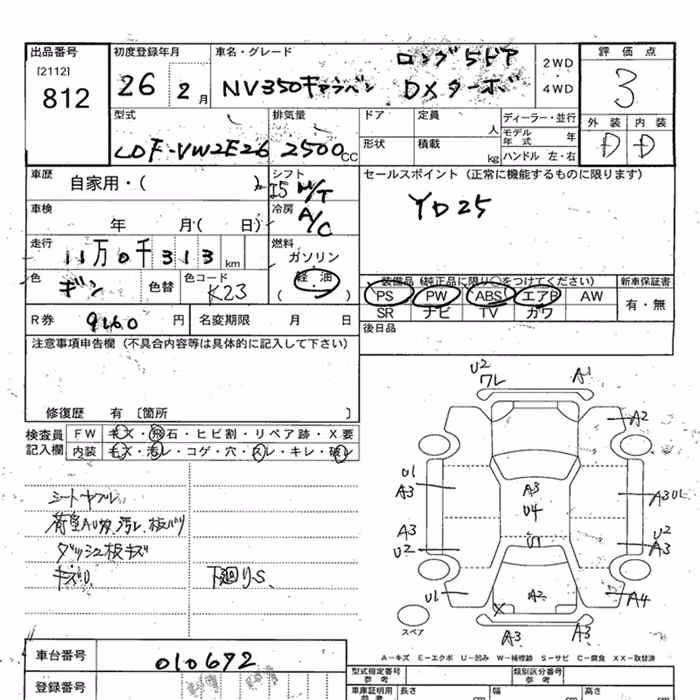 出品番号 初度登録年月 車名・グレード ロング5ドア 2WD・4WD 評価点
[2112]
812 26 2月 NV350キャラバン DXターボ 3
型式 排気量 ドア 定員 人 ディーラー・並行 外装 内装
LDF-VW2E26 2500CC 形状 積載 kg モデル年式 年 D D
ハンドル 左・右
車歴 自家用・( ) シフト I5 M/T セールスポイント (正常に機能するものに限ります)
車検 年 月( 日) 冷房 A/C YD25
走行 11万0千313km 燃料 ガソリン
軽油
( )
色 ギン 色替 色コード K23
装備品 (純正品に限り○をつけてください) 新車保証書
PS PW ABS エアB AW 有・無
SR ナビ TV カワ
R券 9160円 名変期限 月 日 後日品
注意事項申告欄 (不具合内容等は具体的に記入して下さい)
修復歴 有 [箇所 ]
検査員 FW キズ・飛石・ヒビ割・リペア跡・X要
記入欄 内装 モス・汚レ・コゲ・穴・スレ・キレ・破レ
シートヤブレ
汚レ
ダッシュ板キズ
下廻りS、
U2 ワレ A1
A2
U1 A3 A3 A3 U1
U4
A3 U2 U1 U2 A3
U1 X A2 A4
A3 A3
スペア
A-キズ E-エクボ U-凹み W-補修跡 S-サビ C-腐食 XX-取替済
車台番号 010672 型式指定番号 参考 類別区分番号 参考
登録番号 車庫証明用 参考 長さ 幅 高さ